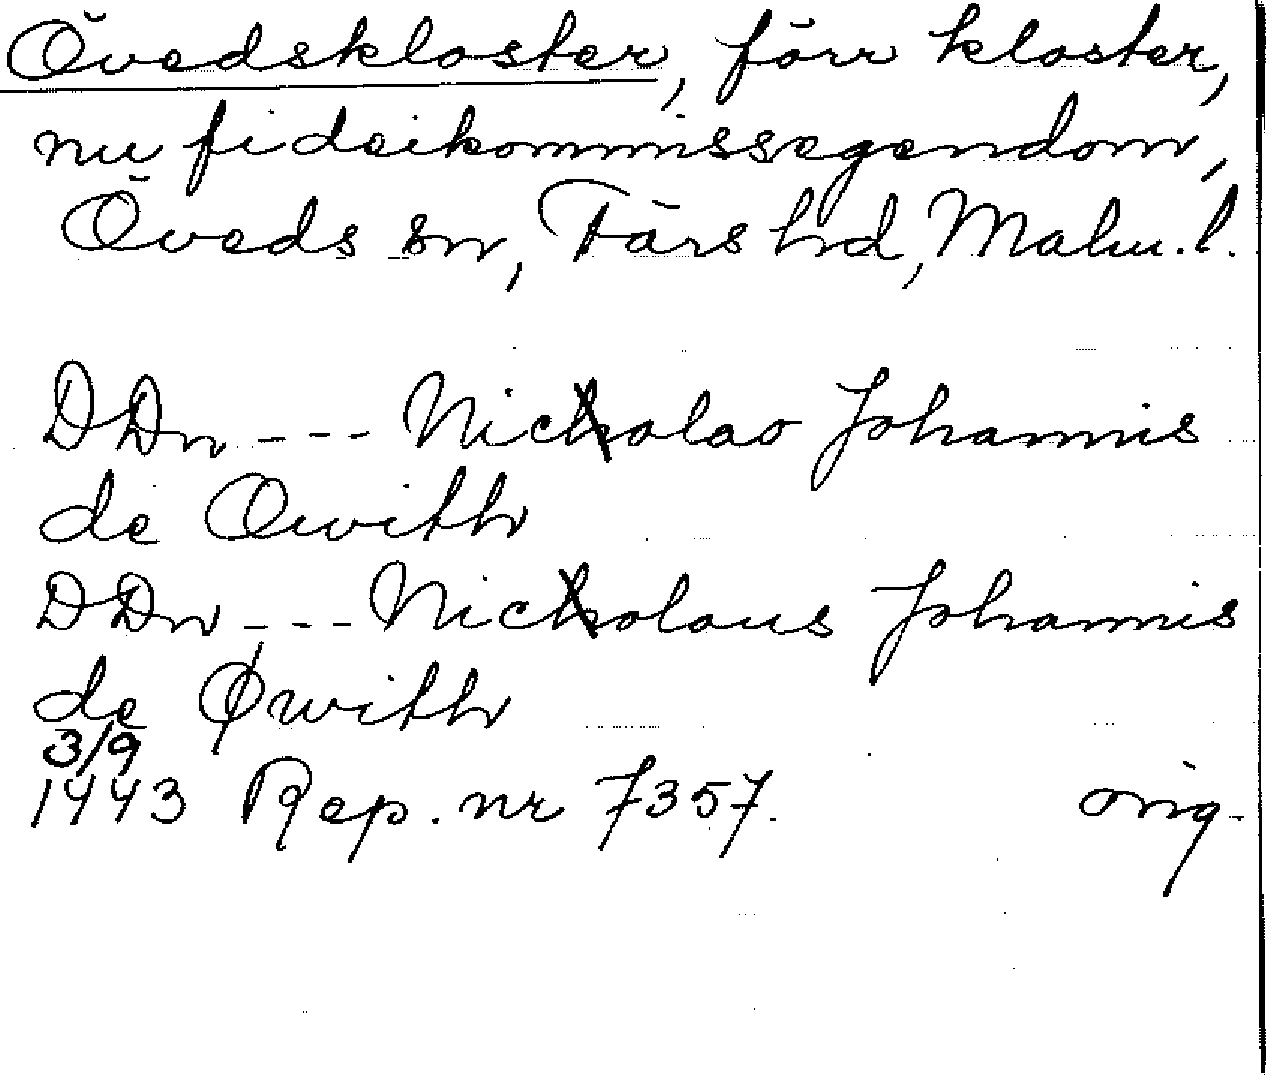 Övedskloster, förr kloster,
nu fideikommissegendom,
Öveds sn, Färs hd, Malm. l.
DDn --- Nicolao Johannis
de Owith
DDn --- Nicolaus Johannis
de Øwith
3/9
1443 Rep. nr 7357. orig.